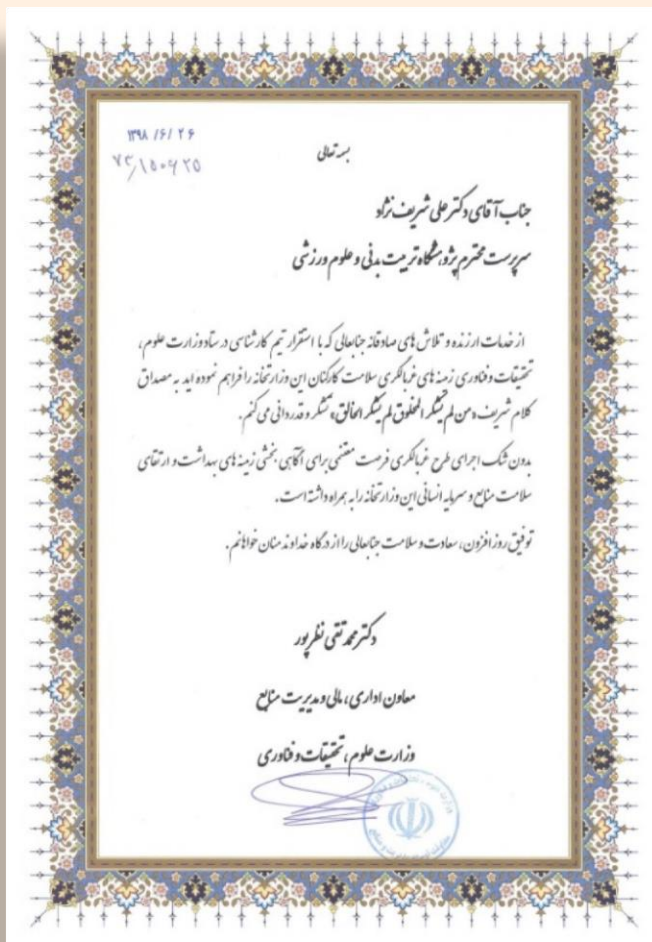 ۱۳۹۸/۶/۲۶
۷۳/۱۵۰۶۲۵
بسمه تعالی
جناب آقای دکتر علی شریف نژاد
سرپرست محترم پژوهشگاه تربیت بدنی و علوم ورزشی
از خدمات ارزنده و تلاش های صادقانه جنابعالی که با استقرار تیم کارشناسی در ستاد وزارت علوم،
تحقیقات و فناوری زمینه های غربالگری سلامت کارکنان این وزارتخانه را فراهم نموده اید به مصداق
کلام شریف «من لم یشکر المخلوق لم یشکر الخالق» تشکر و قدردانی می کنم.
بدون شک اجرای طرح غربالگری فرصت مغتنمی برای آگاهی بخشی زمینه های بهداشت و ارتقای
سلامت منابع و سرمایه انسانی این وزارتخانه را به همراه داشته است.
توفیق روزافزون، سعادت و سلامت جنابعالی را از درگاه خداوند منان خواهانم.
دکتر محمد تقی نظرپور
معاون اداری، مالی و مدیریت منابع
وزارت علوم، تحقیقات و فناوری